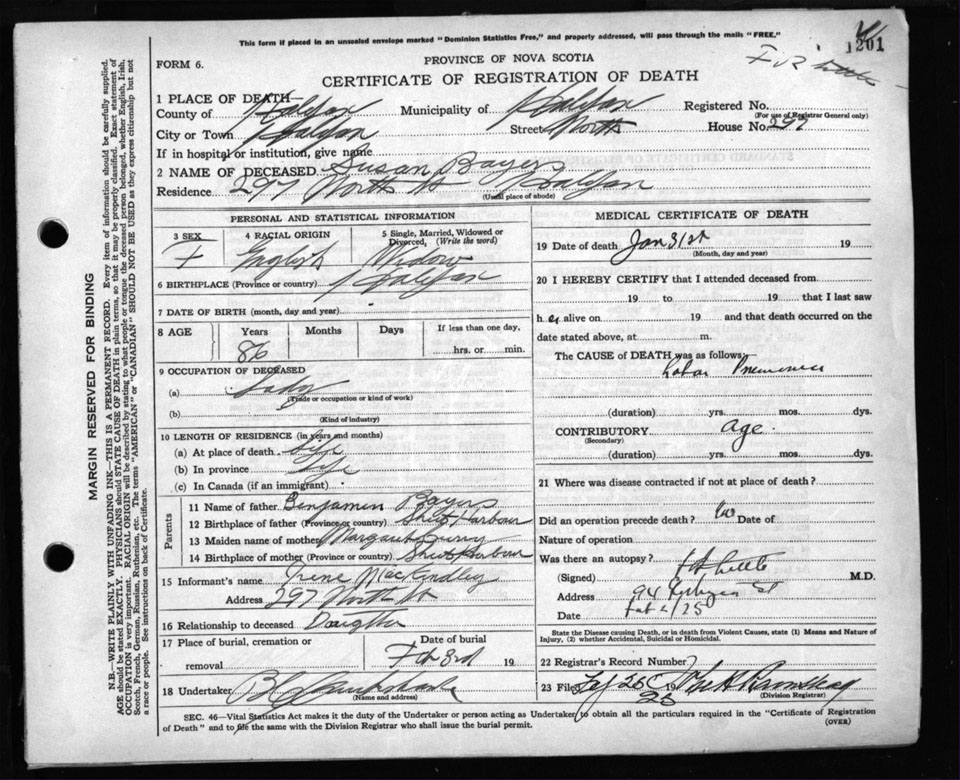 This form if placed in an unsealed envelope marked "Dominion Statistics Free," and properly addressed, will pass through the mails "FREE."
1201
FORM 6.
PROVINCE OF NOVA SCOTIA
CERTIFICATE OF REGISTRATION OF DEATH
1 PLACE OF DEATH
County of Halifax Municipality of Halifax Registered No.
(For use of Registrar General only)
City or Town Halifax Street North House No. 297
If in hospital or institution, give name
2 NAME OF DECEASED Susan Bayers
Residence 297 North St Halifax
(Usual place of abode)
PERSONAL AND STATISTICAL INFORMATION
3 SEX 4 RACIAL ORIGIN 5 Single, Married, Widowed or Divorced, (Write the word)
F English Widow
6 BIRTHPLACE (Province or country) Halifax
7 DATE OF BIRTH (month, day and year)
8 AGE Years Months Days If less than one day,
86 hrs. or min.
9 OCCUPATION OF DECEASED
(a) Lady
(Trade or occupation or kind of work)
(b)
(Kind of industry)
10 LENGTH OF RESIDENCE (in years and months)
(a) At place of death Life
(b) In province Life
(c) In Canada (if an immigrant)
Parents
11 Name of father Benjamin Bayers
12 Birthplace of father (Province or country) Sheet Harbour
13 Maiden name of mother Margaret
14 Birthplace of mother (Province or country) Sheet Harbour
15 Informant's name Irene
Address 297 North St
16 Relationship to deceased Daugther
17 Place of burial, cremation or removal Date of burial
Feb 3rd 19
18 Undertaker
(Name and address)
MEDICAL CERTIFICATE OF DEATH
19 Date of death Jan 31st 19
(Month, day and year)
20 I HEREBY CERTIFY that I attended deceased from
19 to 19 that I last saw
h er alive on 19 and that death occurred on the
date stated above, at m.
The CAUSE of DEATH was as follows:
Lobar Pneumonia
(duration) yrs. mos. dys.
CONTRIBUTORY Age.
(Secondary)
(duration) yrs. mos. dys.
21 Where was disease contracted if not at place of death?
Did an operation precede death? No Date of
Nature of operation
Was there an autopsy?
(Signed) M.D.
Address 94 St
Date
State the Disease causing Death, or in death from Violent Causes, state (1) Means and Nature of Injury, (2) whether Accidental, Suicidal or Homicidal.
22 Registrar's Record Number
23 Filed 19
(Division Registrar)
SEC. 46—Vital Statistics Act makes it the duty of the Undertaker or person acting as Undertaker to obtain all the particulars required in the "Certificate of Registration
of Death" and to file the same with the Division Registrar who shall issue the burial permit.
(OVER)
MARGIN RESERVED FOR BINDING
N.B.—WRITE PLAINLY WITH UNFADING INK—THIS IS A PERMANENT RECORD. Every item of information should be carefully supplied.
AGE should be stated EXACTLY. PHYSICIANS should STATE CAUSE OF DEATH in plain terms, so that it may be properly classified. Exact statement of
OCCUPATION is very important. RACIAL ORIGIN will be described by stating to what people or tongue the deceased person belonged, whether English, Irish,
Scotch, French, German, Russian, Ruthenian, etc. The terms "AMERICAN" or "CANADIAN" SHOULD NOT BE USED as they express citizenship but not
a race or people. See instructions on back of Certificate.